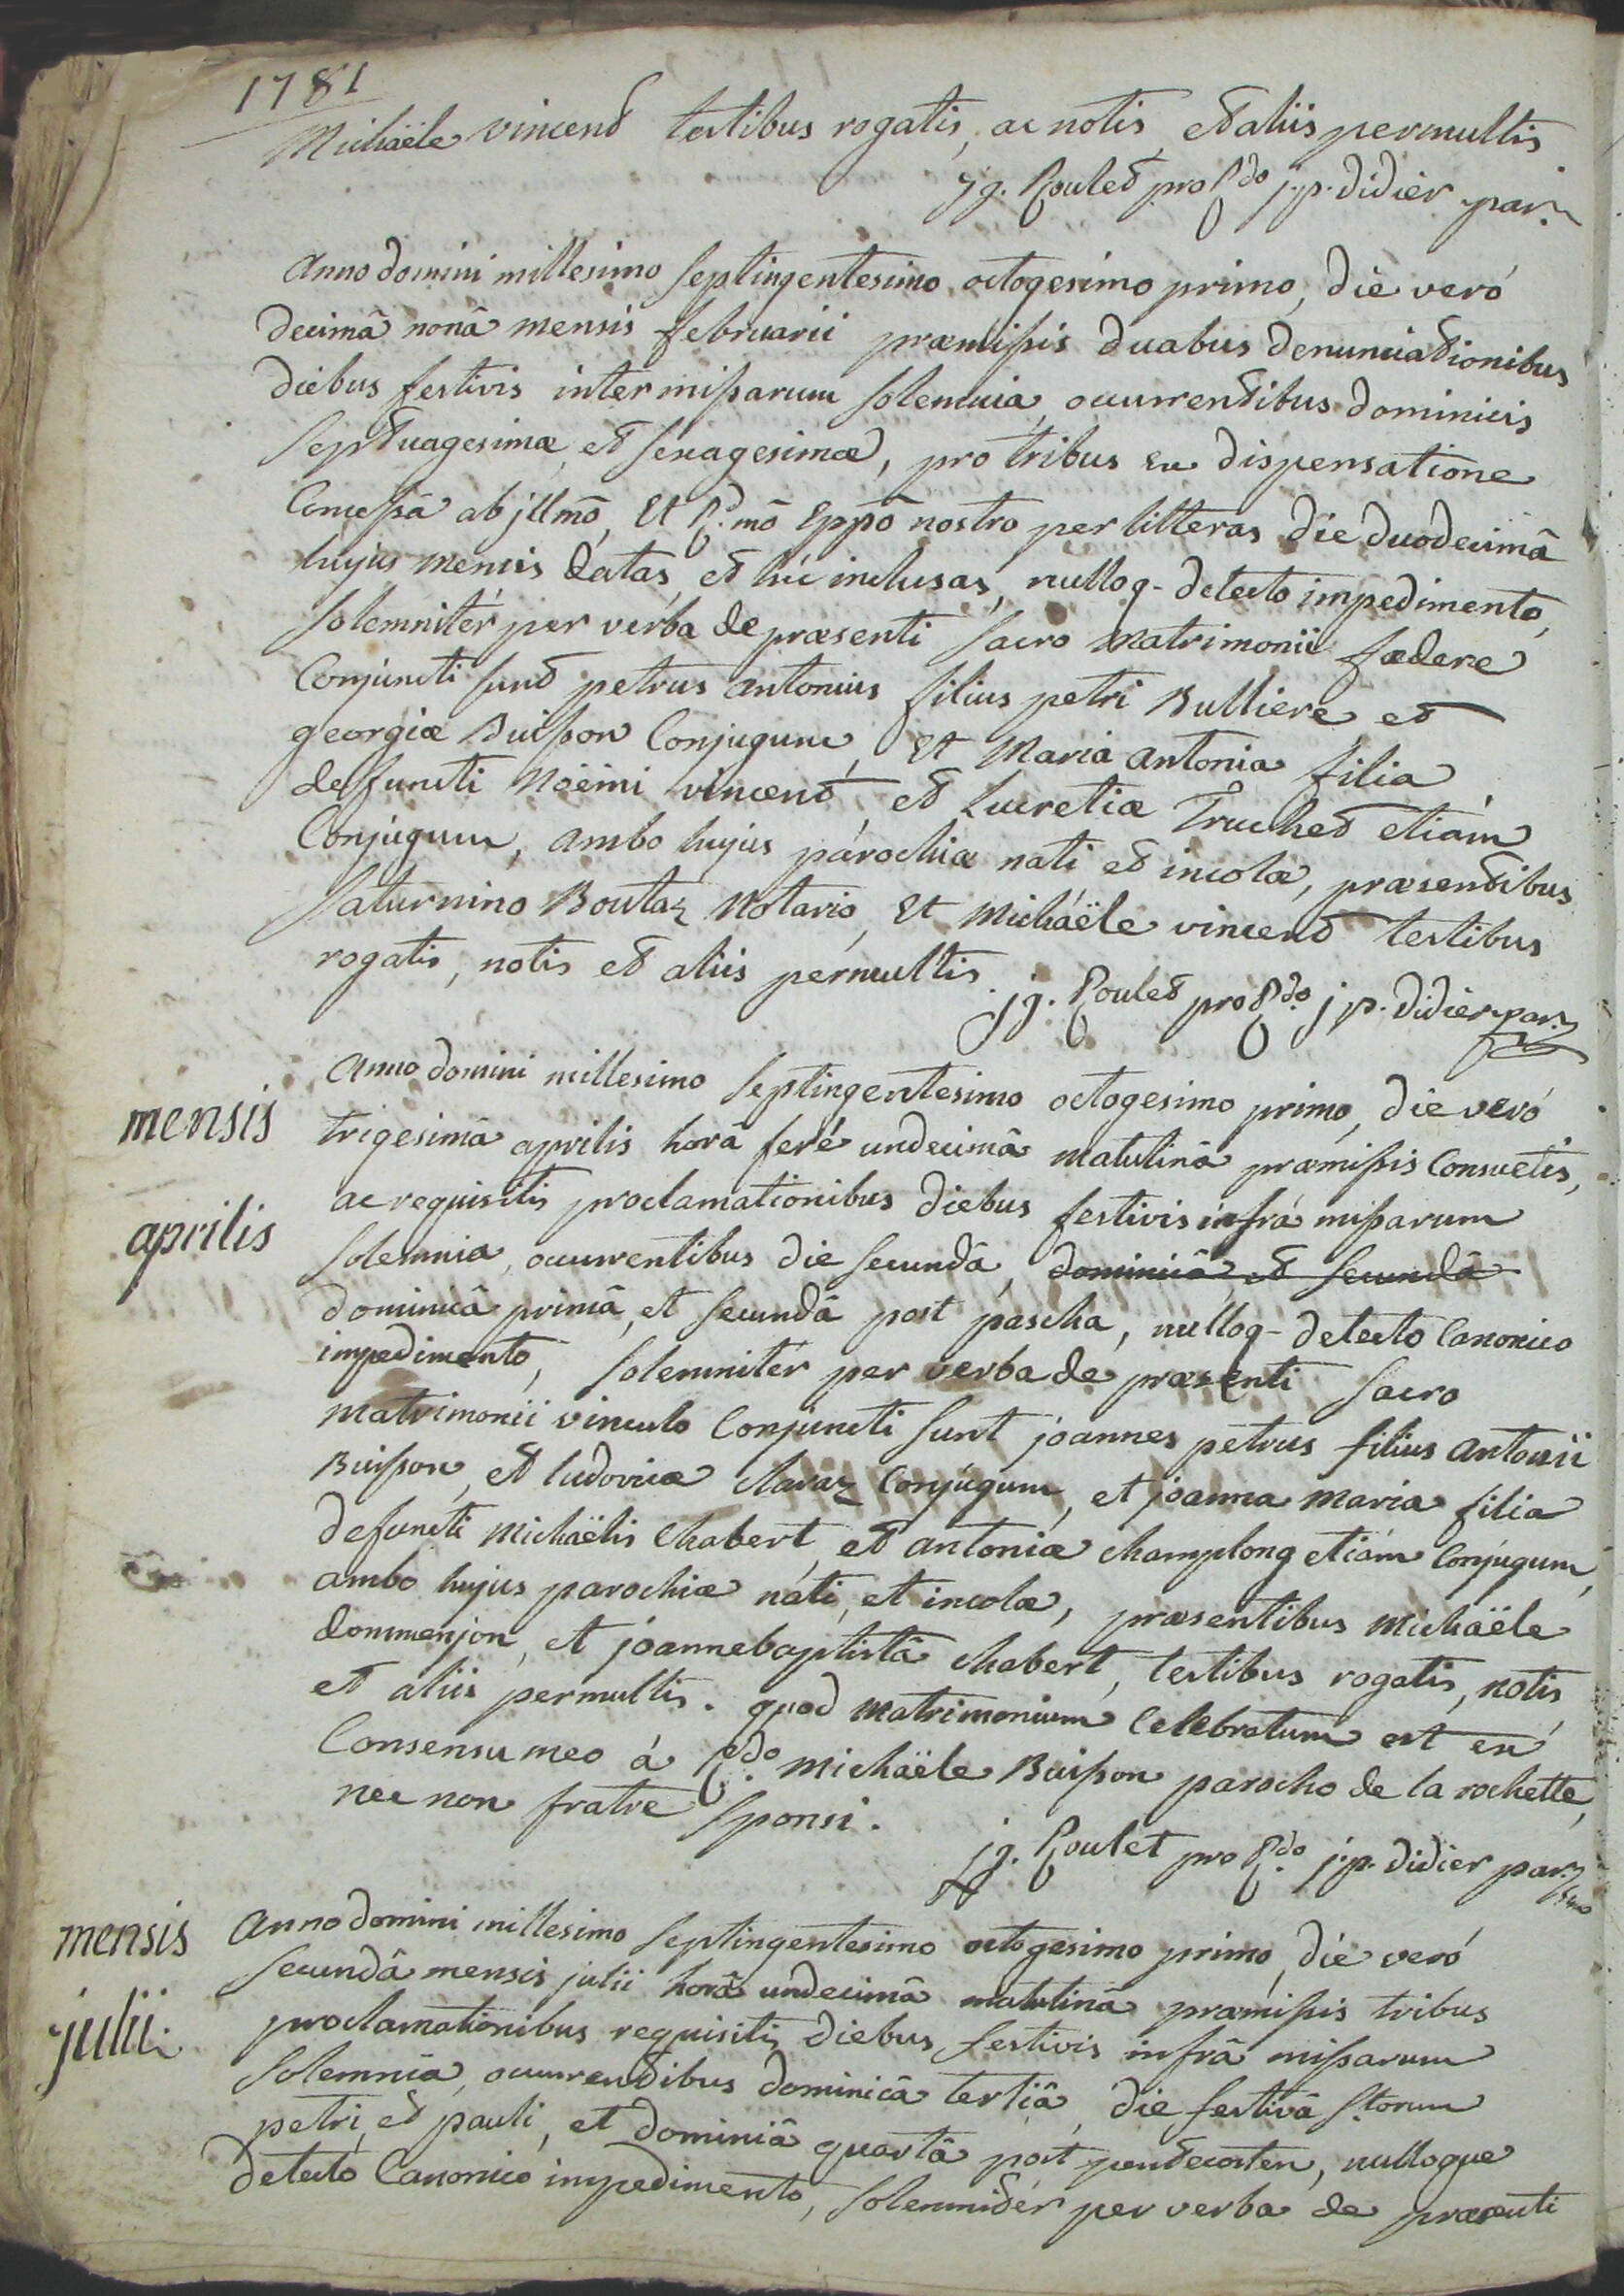 1781
Michaële vincend testibus rogatis, ac notis, et aliis permultis
jg. Roulet pro Rdo j.p. didier par.
anno domini millesimo septingentesimo octogesimo primo, die veró
decimâ nonâ mensis februarii præmissis duabus denunciationibus
diebus festivis inter missarum solemnia, occurrentibus dominicis
septuagesimæ, et sexagesimæ, pro tribus ex dispensatione
Concessâ ab jllmo, Et R.mo Eppo nostro per litteras die duodecimâ
hujus mensis datas, et hic inclusas, nulloq- detecto impedimento,
solemnitér per verba de præsenti sacro matrimonii fædere
Conjuncti sunt petrus antonius filius petri Bulliere, et
georgiæ Buisson Conjugum, Et Maria antonia filia
defuncti Noëmi vincent, et Lucretiæ Truchet etiám
Conjugum, ambo hujus parochiæ nati et incolæ, præsentibus
Saturnino Boutaz Notario, Et Michaële vincend testibus
rogatis, notis et aliis permultis.
jg. Roulet pro Rdo. j p. didier par.
mensis
aprilis
anno domini millesimo septingentesimo octogesimo primo, die veró
trigesimâ aprilis horâ feré undecimâ matutinâ præmissis Consuetis,
ac requisitis proclamationibus diebus festivis infrà missarum
solemnia, occurrentibus die secundâ, dominicâ et secundâ
dominicâ primâ, et secundâ post pascha, nulloq- detecto Canonico
impedimento, solemnitér per verba de præsenti sacro
matrimonii vinculo Conjuncti sunt joannes petrus filius antonii
Buisson, et ludovicæ claraz Conjugum, et joanna maria filia
defuncti Michaëlis Chabert, et antoniæ champlong etiám Conjugum,
ambo hujus parochiæ nati, et incolæ, præsentibus Michaële
dommenjon, et joannebaptistâ chabert, testibus rogatis, notis
et aliis permultis. quod matrimonium Celebratum est ex
Consensu meo á Rdo. Michaële Buisson parocho de la rochette,
nec non fratre sponsi.
jg. Roulet pro Rdo j.p. didier par.
mensis
julii.
anno domini millesimo septingentesimo octogesimo primo, die veró
secundâ mensis julii horâ undecimâ matutinâ præmissis tribus
proclamationibus requisitis diebus festivis infrâ missarum
solemnia, occurrentibus dominicâ tertiâ, die festivâ s.torum
petri, et pauli, et dominiâ quartâ post pentecosten, nulloque
detecto Canonico impedimento, solemnitér per verba de præsenti